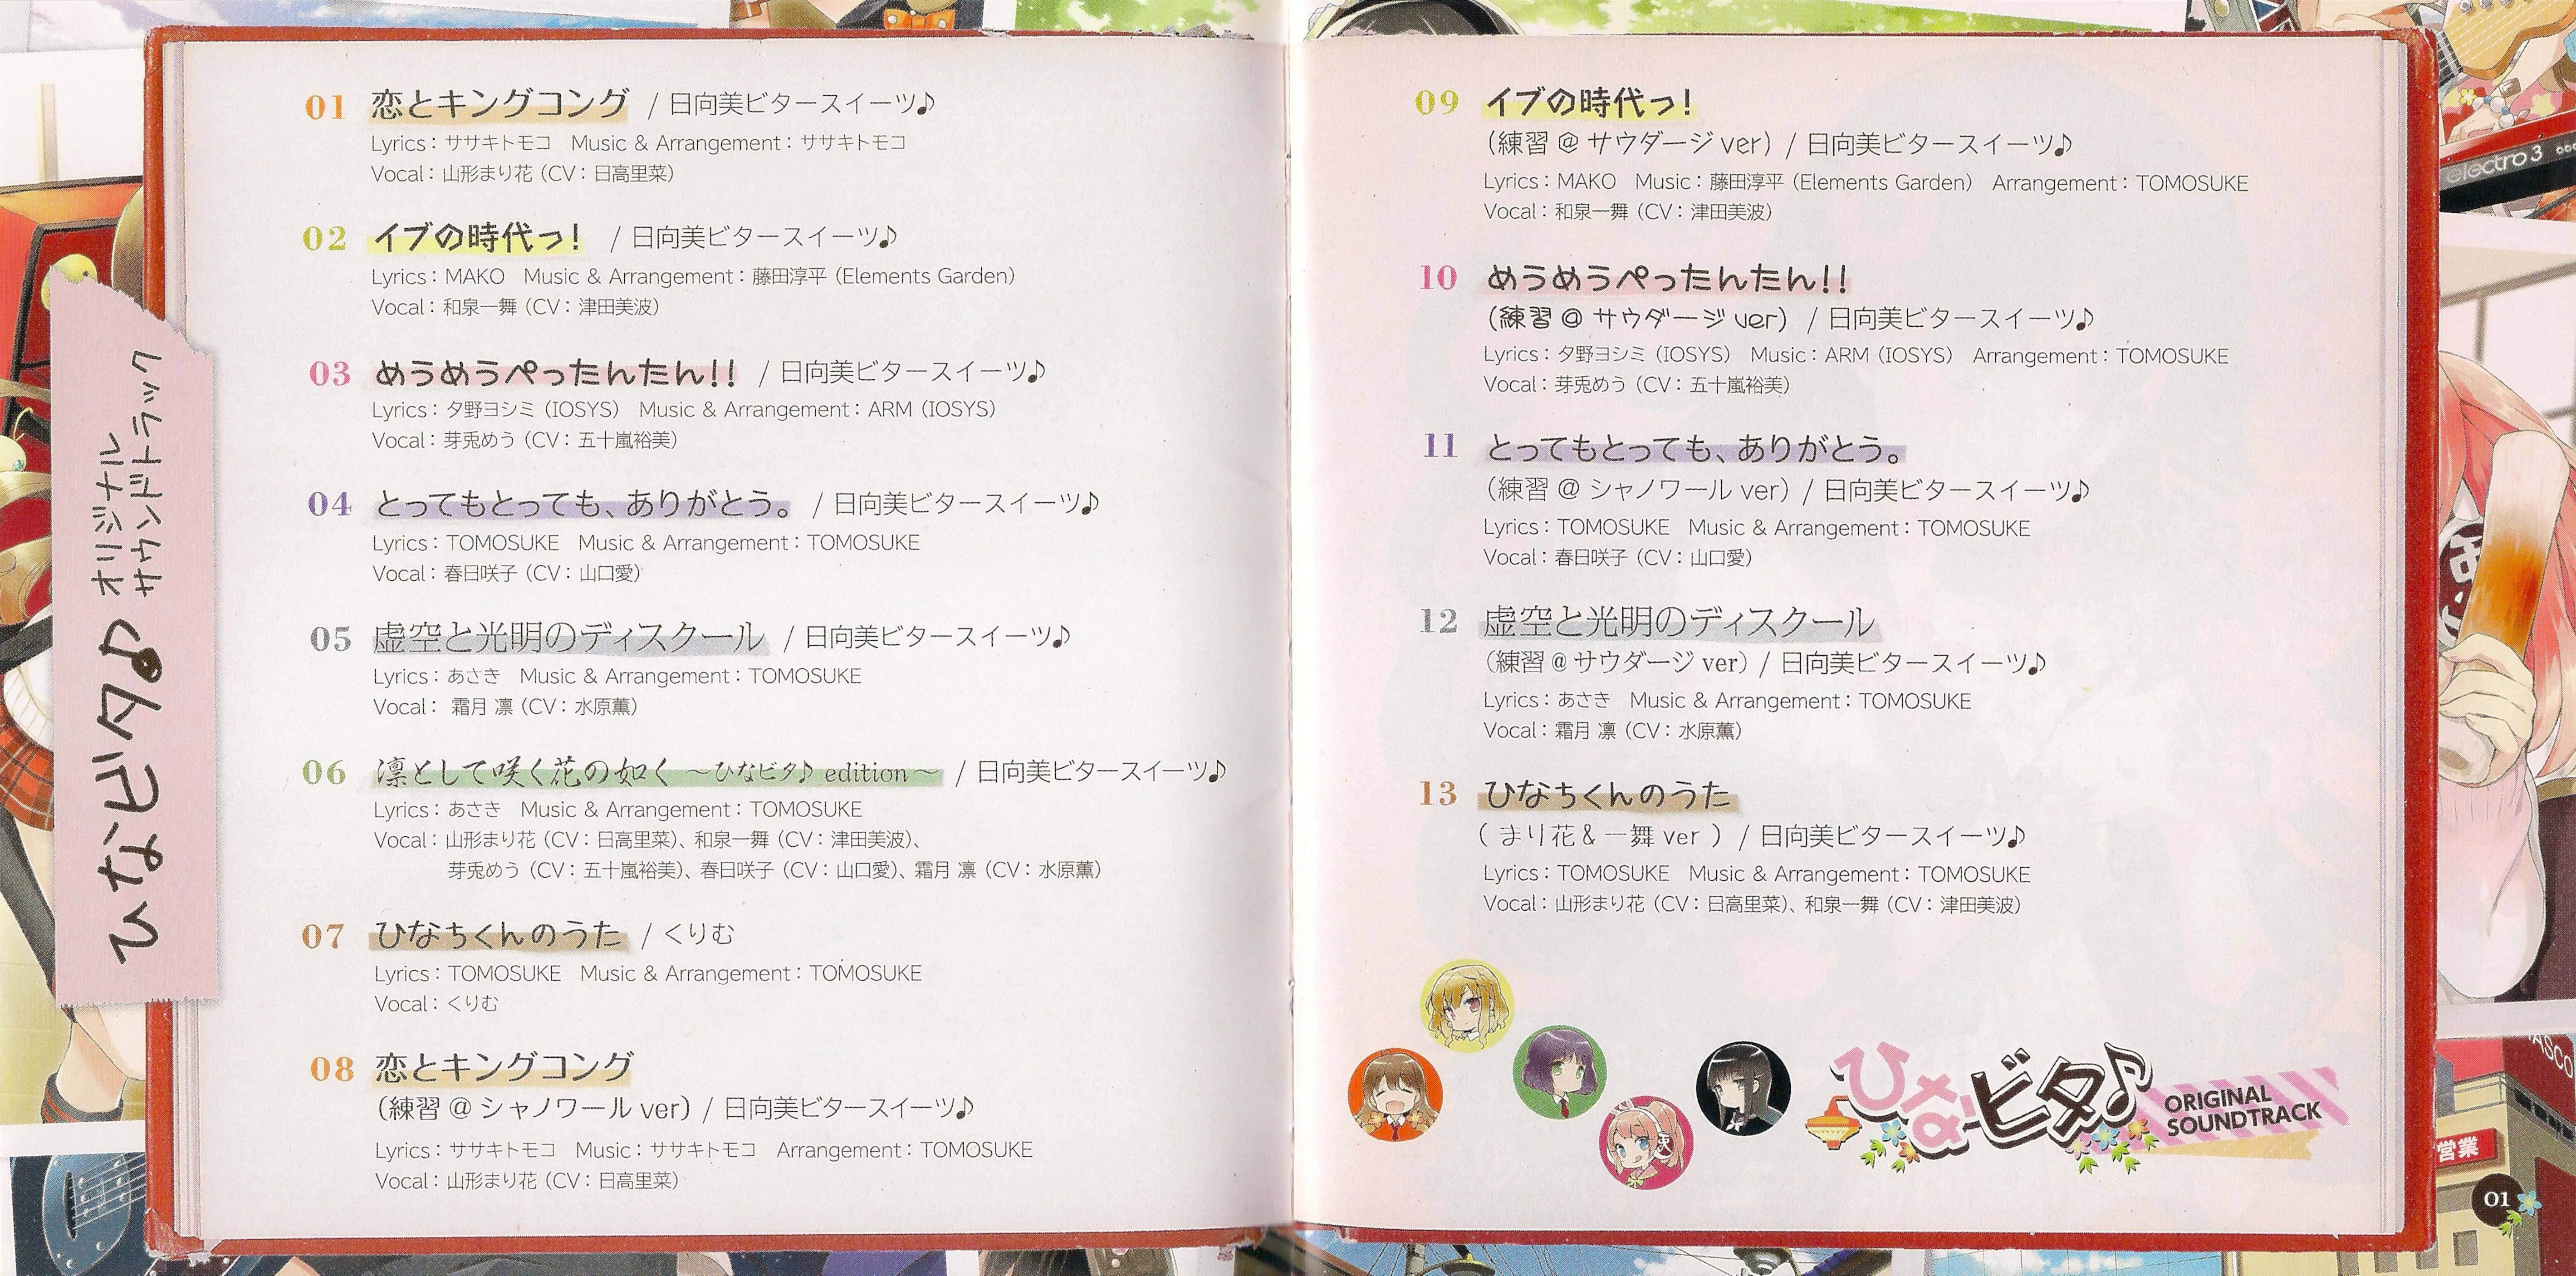 ひなビタ♪ オリジナル
サウンドトラック
01 恋とキングコング / 日向美ビタースイーツ♪
Lyrics：ササキトモコ Music & Arrangement：ササキトモコ
Vocal：山形まり花（CV：日高里菜）
02 イブの時代っ！ / 日向美ビタースイーツ♪
Lyrics：MAKO Music & Arrangement：藤田淳平（Elements Garden）
Vocal：和泉一舞（CV：津田美波）
03 めうめうぺったんたん！！ / 日向美ビタースイーツ♪
Lyrics：夕野ヨシミ（IOSYS） Music & Arrangement：ARM（IOSYS）
Vocal：芽兎めう（CV：五十嵐裕美）
04 とってもとっても、ありがとう。 / 日向美ビタースイーツ♪
Lyrics：TOMOSUKE Music & Arrangement：TOMOSUKE
Vocal：春日咲子（CV：山口愛）
05 虚空と光明のディスクール / 日向美ビタースイーツ♪
Lyrics：あさき Music & Arrangement：TOMOSUKE
Vocal： 霜月 凛（CV：水原薫）
06 凛として咲く花の如く ～ひなビタ♪ edition～ / 日向美ビタースイーツ♪
Lyrics：あさき Music & Arrangement：TOMOSUKE
Vocal：山形まり花（CV：日高里菜）、和泉一舞（CV：津田美波）、
芽兎めう（CV：五十嵐裕美）、春日咲子（CV：山口愛）、霜月 凛（CV：水原薫）
07 ひなちくんのうた / くりむ
Lyrics：TOMOSUKE Music & Arrangement：TOMOSUKE
Vocal：くりむ
08 恋とキングコング
（練習@シャノワール ver）/ 日向美ビタースイーツ♪
Lyrics：ササキトモコ Music：ササキトモコ Arrangement：TOMOSUKE
Vocal：山形まり花（CV：日高里菜）
09 イブの時代っ！
（練習@サウダージ ver）/ 日向美ビタースイーツ♪
Lyrics：MAKO Music：藤田淳平（Elements Garden） Arrangement：TOMOSUKE
Vocal：和泉一舞（CV：津田美波）
10 めうめうぺったんたん！！
（練習@サウダージ ver）/ 日向美ビタースイーツ♪
Lyrics：夕野ヨシミ（IOSYS） Music：ARM（IOSYS） Arrangement：TOMOSUKE
Vocal：芽兎めう（CV：五十嵐裕美）
11 とってもとっても、ありがとう。
（練習@シャノワール ver）/ 日向美ビタースイーツ♪
Lyrics：TOMOSUKE Music & Arrangement：TOMOSUKE
Vocal：春日咲子（CV：山口愛）
12 虚空と光明のディスクール
（練習@サウダージ ver）/ 日向美ビタースイーツ♪
Lyrics：あさき Music & Arrangement：TOMOSUKE
Vocal：霜月 凛（CV：水原薫）
13 ひなちくんのうた
（まり花&一舞 ver）/ 日向美ビタースイーツ♪
Lyrics：TOMOSUKE Music & Arrangement：TOMOSUKE
Vocal：山形まり花（CV：日高里菜）、和泉一舞（CV：津田美波）
ひなビタ♪ ORIGINAL
SOUNDTRACK
electro 3
営業
01